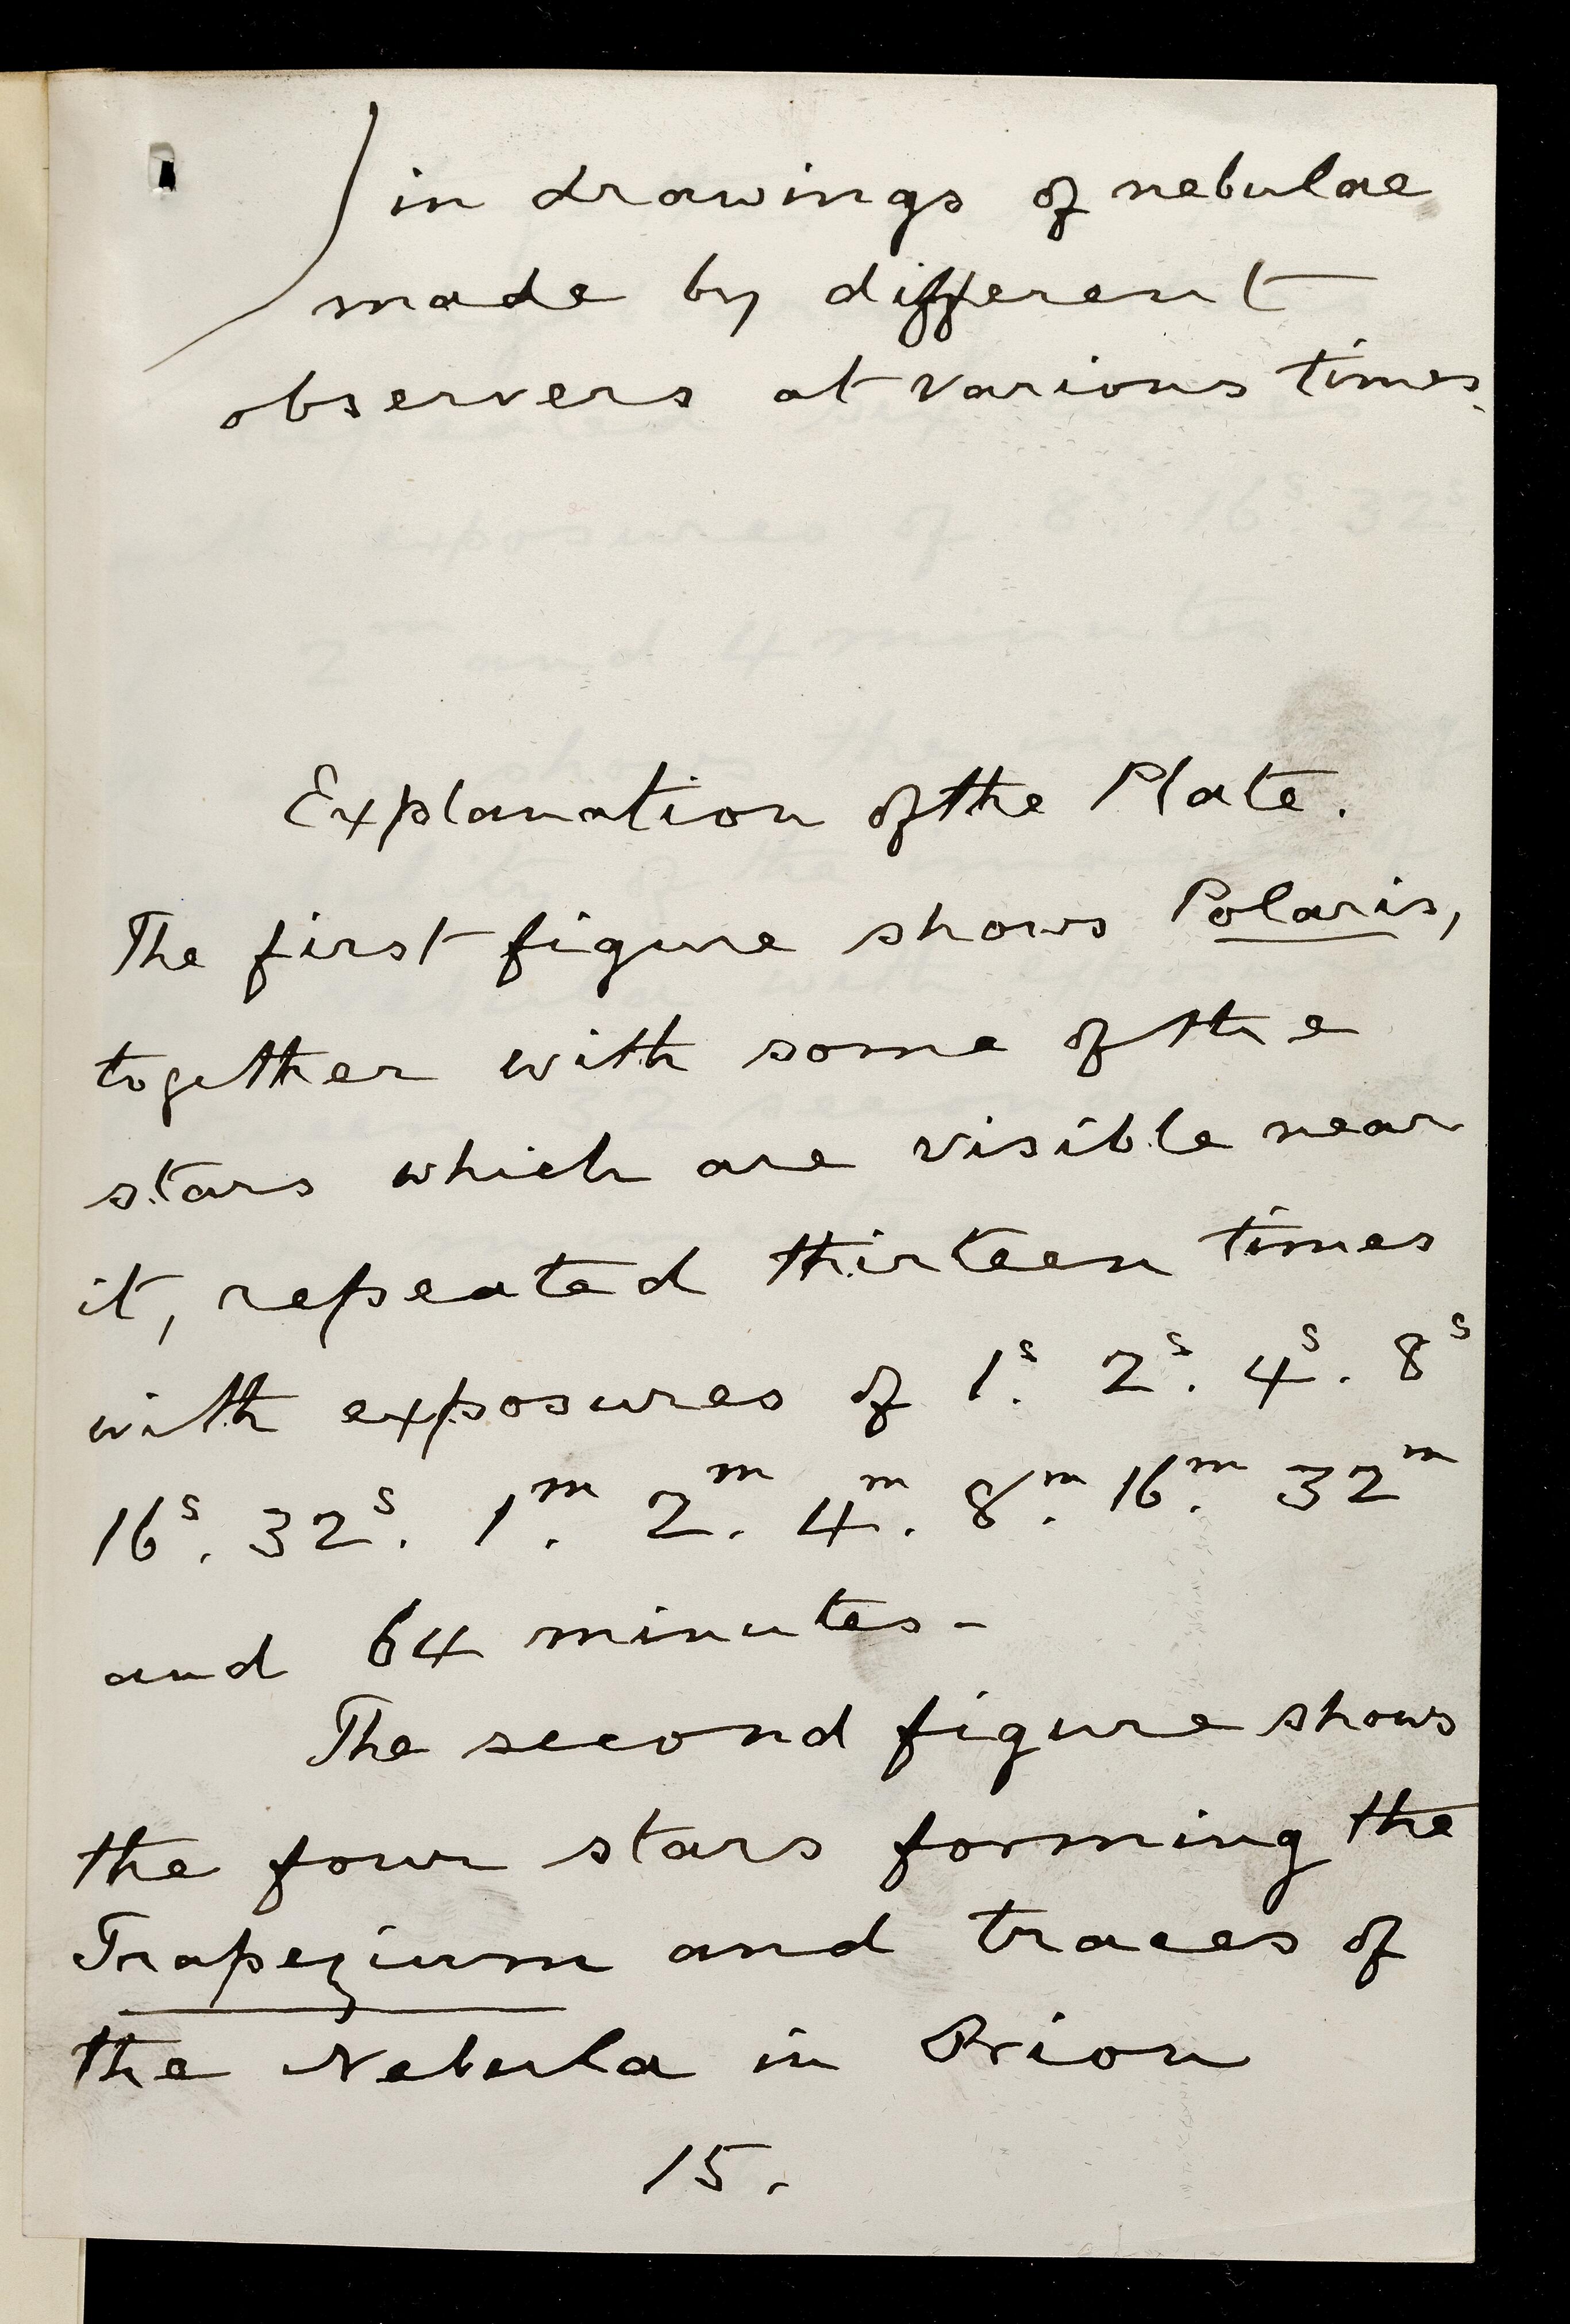 in drawings of nebulae
made by different
observers at various times.
Explanation of the Plate.
The first figure shows Polaris,
together with some of the
stars which are visible near
it, repeated thirteen times
with exposures of 1ˢ. 2ˢ. 4ˢ. 8ˢ
16ˢ. 32ˢ. 1ᵐ. 2ᵐ. 4ᵐ. 8ᵐ. 16ᵐ. 32ᵐ
and 64 minutes-
The second figure shows
the four stars forming the
Trapezium and traces of
the Nebula in Orion
15.